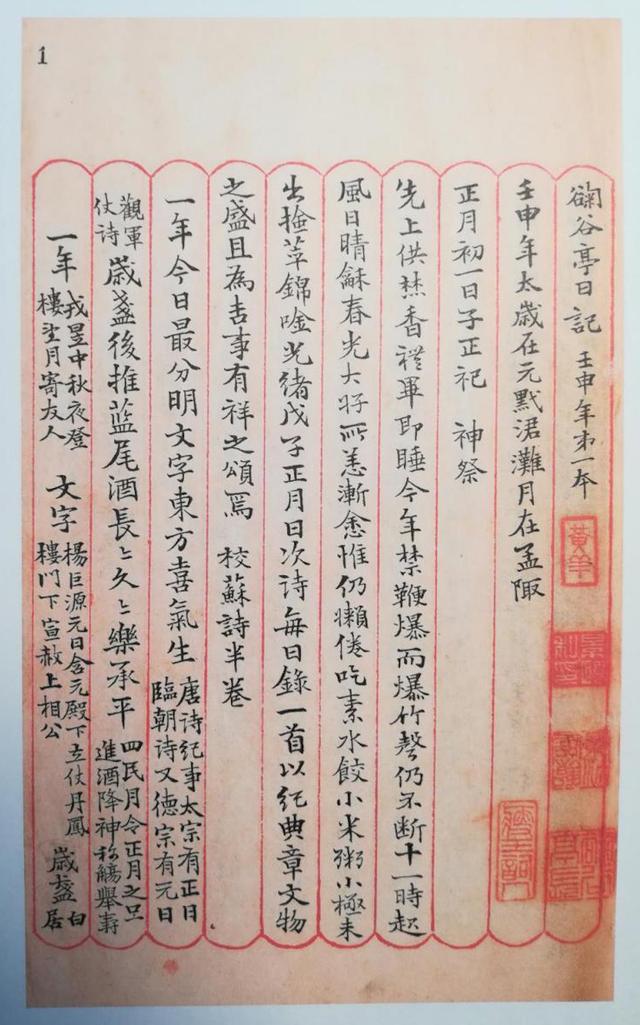 1
鞠谷亭日記 壬申年第一本
黃羊
壬申年太歲在元黓涒灘月在孟陬
正月初一日子正祀 神祭
先上供焚香禮畢即睡今年禁鞭爆而爆竹聲仍不斷十一時起
風日晴龢春光大好所恙漸愈惟仍嬾倦吃素水餃小米粥小極未
出撿苹錦唫光緒戊子正月日次詩每日錄一首以紀典章文物
之盛且為吉事有祥之頌焉 校蘇詩半卷
一年今日最分明文字東方喜氣生 唐詩紀事太宗有正日臨朝詩又德宗有元日
觀軍仗詩 歲盞後推藍尾酒長〻久〻樂承平 四民月令正月之旦進酒降神称觴舉壽
一年 戎昱中秋夜登樓望月寄友人 文字 楊巨源元日含元殿下立仗丹鳳樓門下宣赦上相公 歲盞 白居